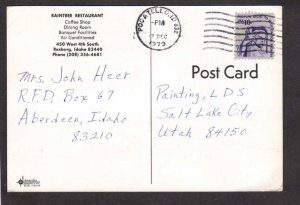 RAINTREE RESTAURANT
Coffee Shop
Dining Room
Banquet Facilities
Air Conditioned
450 West 4th South
Rexburg, Idaho 83440
Phone (208) 356-4681
POCATELLO, ID 832
PM
DEC
1979
Post Card
Mrs. John Heer
R.F.D. Box 67
Aberdeen, Idaho
83210
Painting, LDS
Salt Lake City
Utah 84150